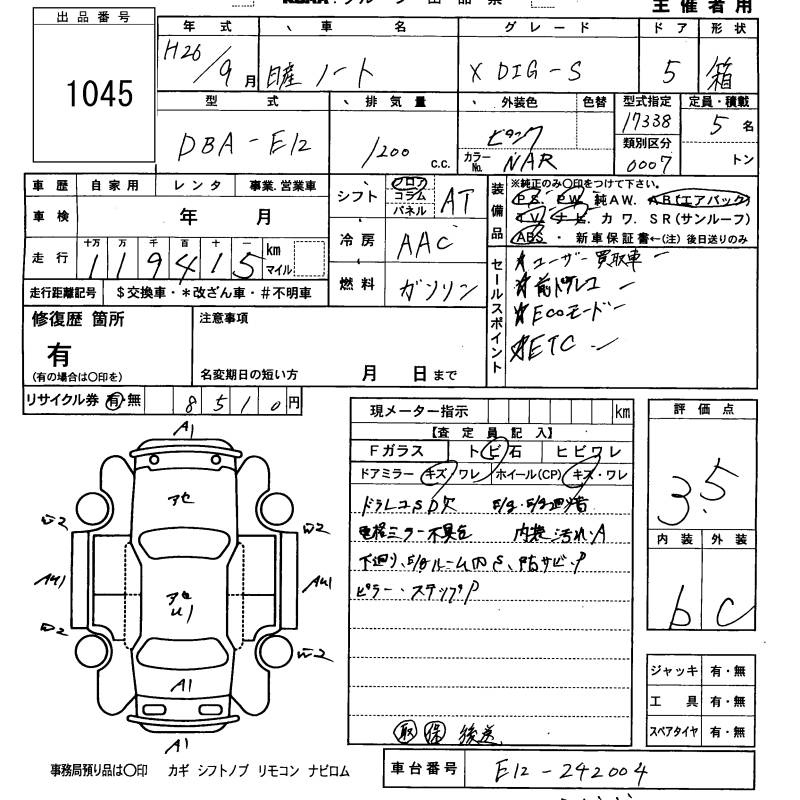 主催者用
出品番号
1045
年式 車名 グレード ドア 形状
H26/9月 日産 ノート X DIG-S 5 箱
型式 排気量 外装色 色替 型式指定 定員・積載
DBA-E12 1200 c.c. カラーNo. NAR 17338 5名
類別区分
0007 トン
車歴 自家用 レンタ 事業.営業車
車検 年 月
走行 十万 万 千 百 十 一 km マイル
119415
走行距離記号 $交換車・*改ざん車・#不明車
シフト フロア コラム パネル AT
冷房 AAC
燃料 ガソリン
装備品
※純正のみ〇印をつけて下さい。
P.S. P.W. 純AW. AB(エアバック)
T.V. ナビ. カワ. SR(サンルーフ)
ABS・新車保証書←(注)後日送りのみ
セールスポイント
ユーザー買取車
前ドラレコ
Ecoモード
ETC
修復歴 箇所
有
(有の場合は〇印を)
注意事項
名変期日の短い方 月 日まで
リサイクル券 有・無 8510円
現メーター指示 km
【査定員記入】
Fガラス トビ石 ヒビワレ
ドアミラー キズ ワレ ホイール(CP) キズ・ワレ
ドラレコSD欠
電格ミラー不具合 内装汚れ・A
ピラー・ステップP
取 保 後送
評価点
3.5
内装 外装
b C
ジャッキ 有・無
工具 有・無
スペアタイヤ 有・無
A1
アセ
A1
A1
事務局預り品は〇印 カギ シフトノブ リモコン ナビロム
車台番号 E12-242004